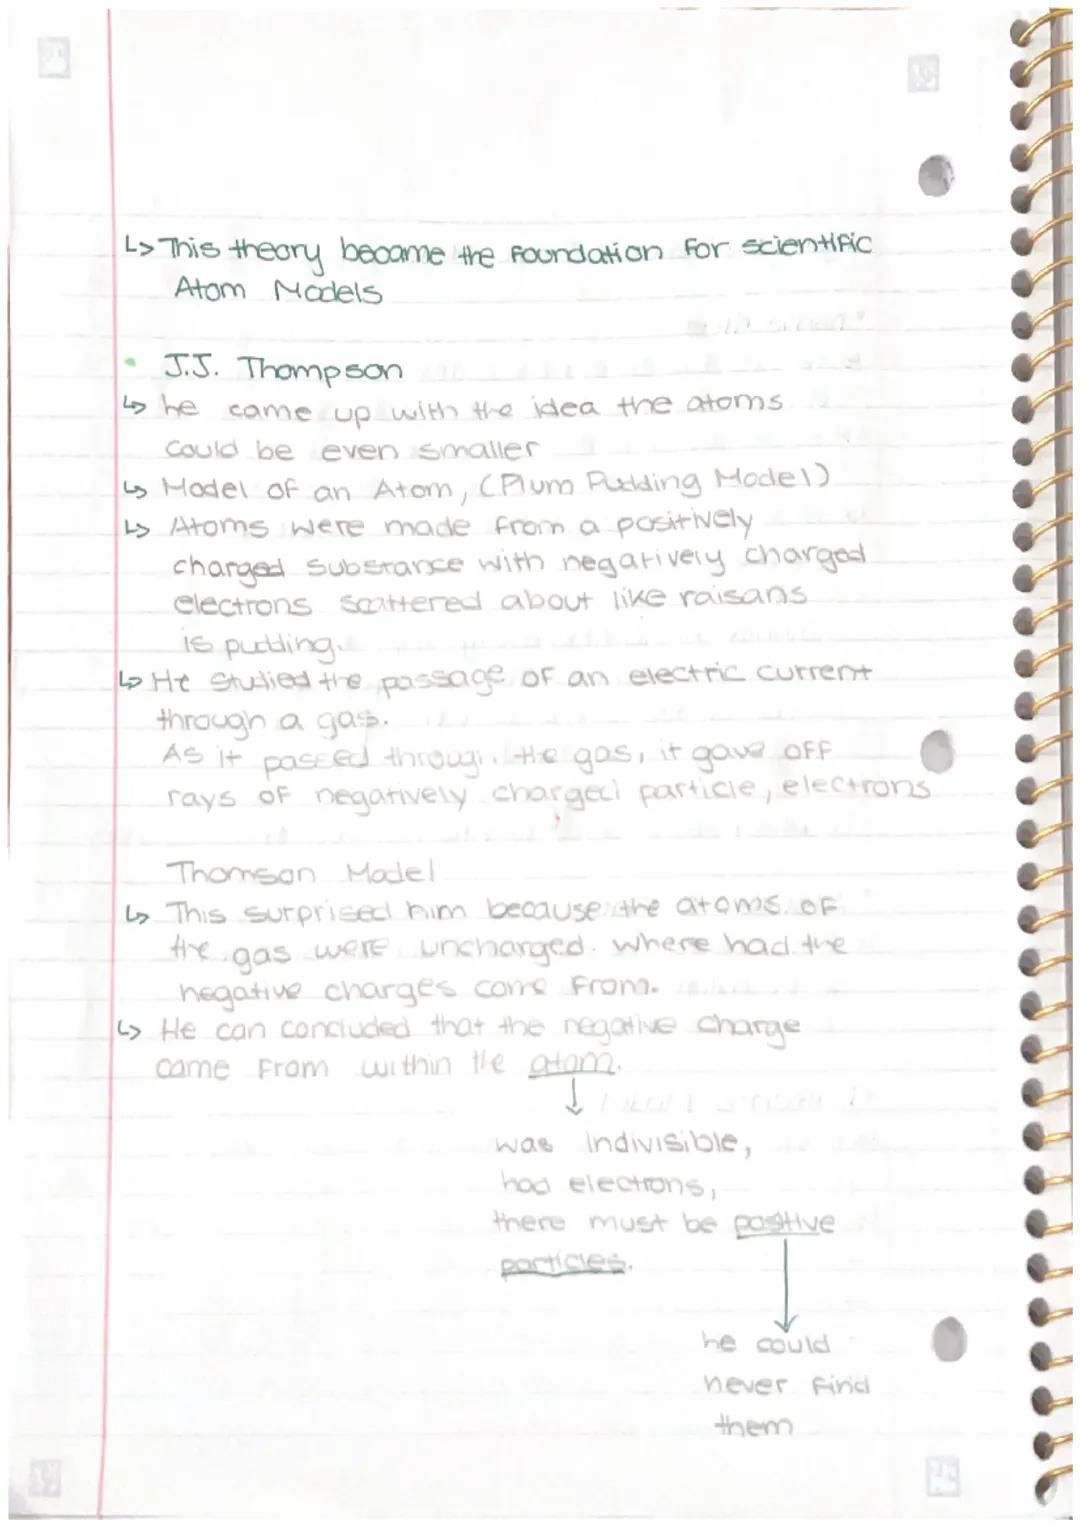 ↳ This theory became the foundation for scientific
Atom Models
• J.J. Thompson
↳ he came up with the idea the atoms
could be even smaller
↳ Model of an Atom, (Plum Pudding Model)
↳ Atoms were made from a positively
charged substance with negatively charged
electrons scattered about like raisans
is pudding.
↳ He studied the passage of an electric current
through a gas.
As it passed through the gas, it gave off
rays of negatively charged particle, electrons
Thomson Model
↳ This surprised him because the atoms of
the gas were uncharged. Where had the
negative charges come from.
↳ He can concluded that the negative charge
came from within the atom.
↓
was indivisible,
had electrons,
there must be postive
particles.
↓
he could
never find
them